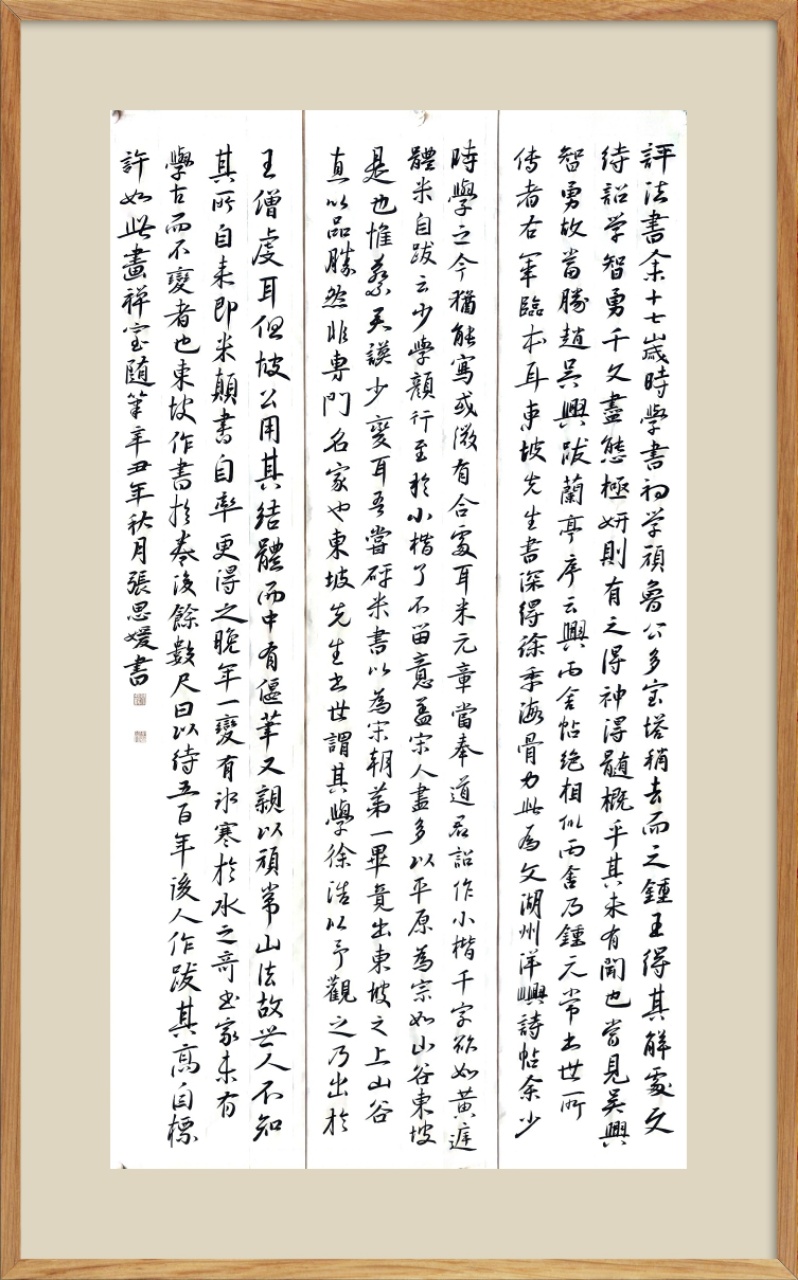 評法書余十七歲時學書初学顏魯公多宝塔稍去而之鍾王得其解處文
待詔学智勇千文盡態極妍則有之得神淂髓概乎其未有聞也嘗見吳興
智勇故當勝趙吴興跋蘭亭序云興丙舍帖绝相似丙舍乃鍾元常出世所
传者右軍臨本耳東坡先生書深得徐季海骨力此為文湖州洋嶼詩帖余少
時學之今猶能寫或微有合處耳米元章當奉道君詔作小楷千字欲如黃庭
體米自跋云少學顏行至於小楷了不留意盖宋人盡多以平原為宗如山谷東坡
是也惟蔡君謨少變耳吾嘗砰米書以為宋朝第一畢竟出東坡之上山谷
直以品勝然非專門名家也東坡先生出世謂其學徐浩以予觀之乃出於
王僧虔耳但坡公用其結體而中有偃筆又親以顏常山法故世人不知
其所自来即米顛書自率更得之晚年一變有冰寒於水之奇书家未有
學古而不變者也東坡作書於卷後餘數尺曰以待五百年後人作跋其高自標
許如此畫禅室随筆辛丑年秋月張思媛書